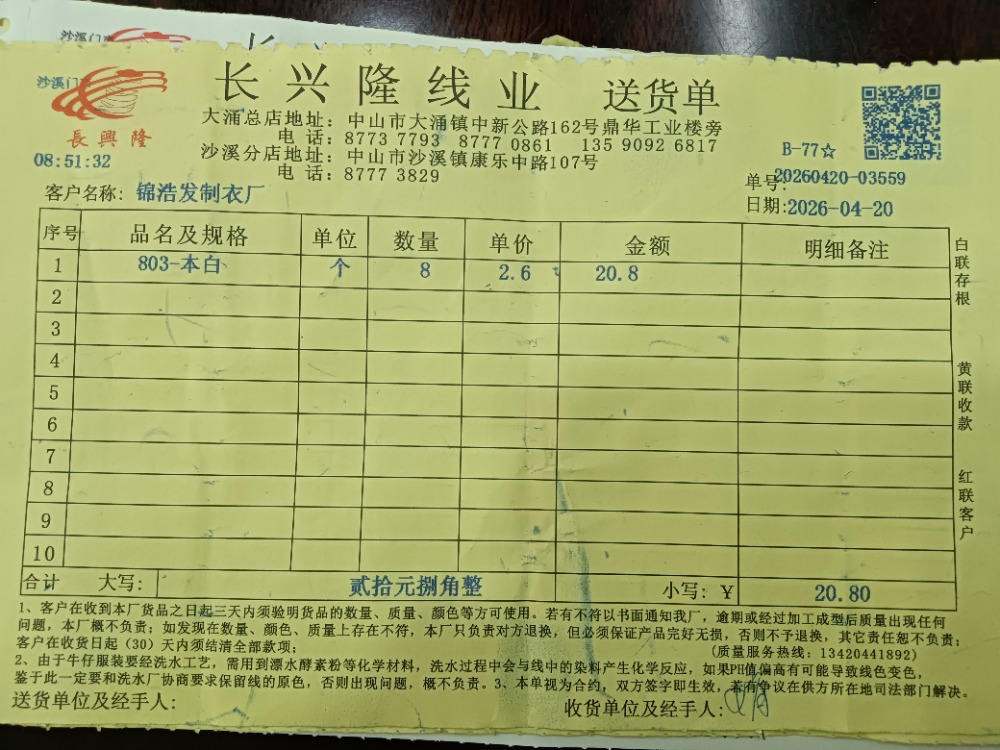 沙溪门
沙溪门
長興隆
08:51:32
长兴隆线业 送货单
大涌总店地址：中山市大涌镇中新公路162号鼎华工业楼旁
电 话：8773 7793 8777 0861 135 9092 6817
沙溪分店地址：中山市沙溪镇康乐中路107号
电 话：8777 3829
B-77☆
单号:20260420-03559
日期:2026-04-20
客户名称: 锦浩发制衣厂
序号 品名及规格 单位 数量 单价 金额 明细备注
1 803-本白 个 8 2.6 20.8
2
3
4
5
6
7
8
9
10
合计 大写: 贰拾元捌角整 小写: ￥ 20.80
白联存根
黄联收款
红联客户
1、客户在收到本厂货品之日起三天内须验明货品的数量、质量、颜色等方可使用。若有不符以书面通知我厂，逾期或经过加工成型后质量出现任何
问题，本厂概不负责；如发现在数量、颜色、质量上存在不符，本厂只负责对方退换，但必须保证产品完好无损，否则不予退换，其它责任恕不负责；
客户在收货日起（30）天内须结清全部款项； (质量服务热线：13420441892)
2、由于牛仔服装要经洗水工艺，需用到漂水酵素粉等化学材料，洗水过程中会与线中的染料产生化学反应，如果PH值偏高有可能导致线色变色，
鉴于此一定要和洗水厂协商要求保留线的原色，否则出现问题，概不负责。3、本单视为合约，双方签字即生效，若有争议在供方所在地司法部门解决。
送货单位及经手人: 收货单位及经手人: